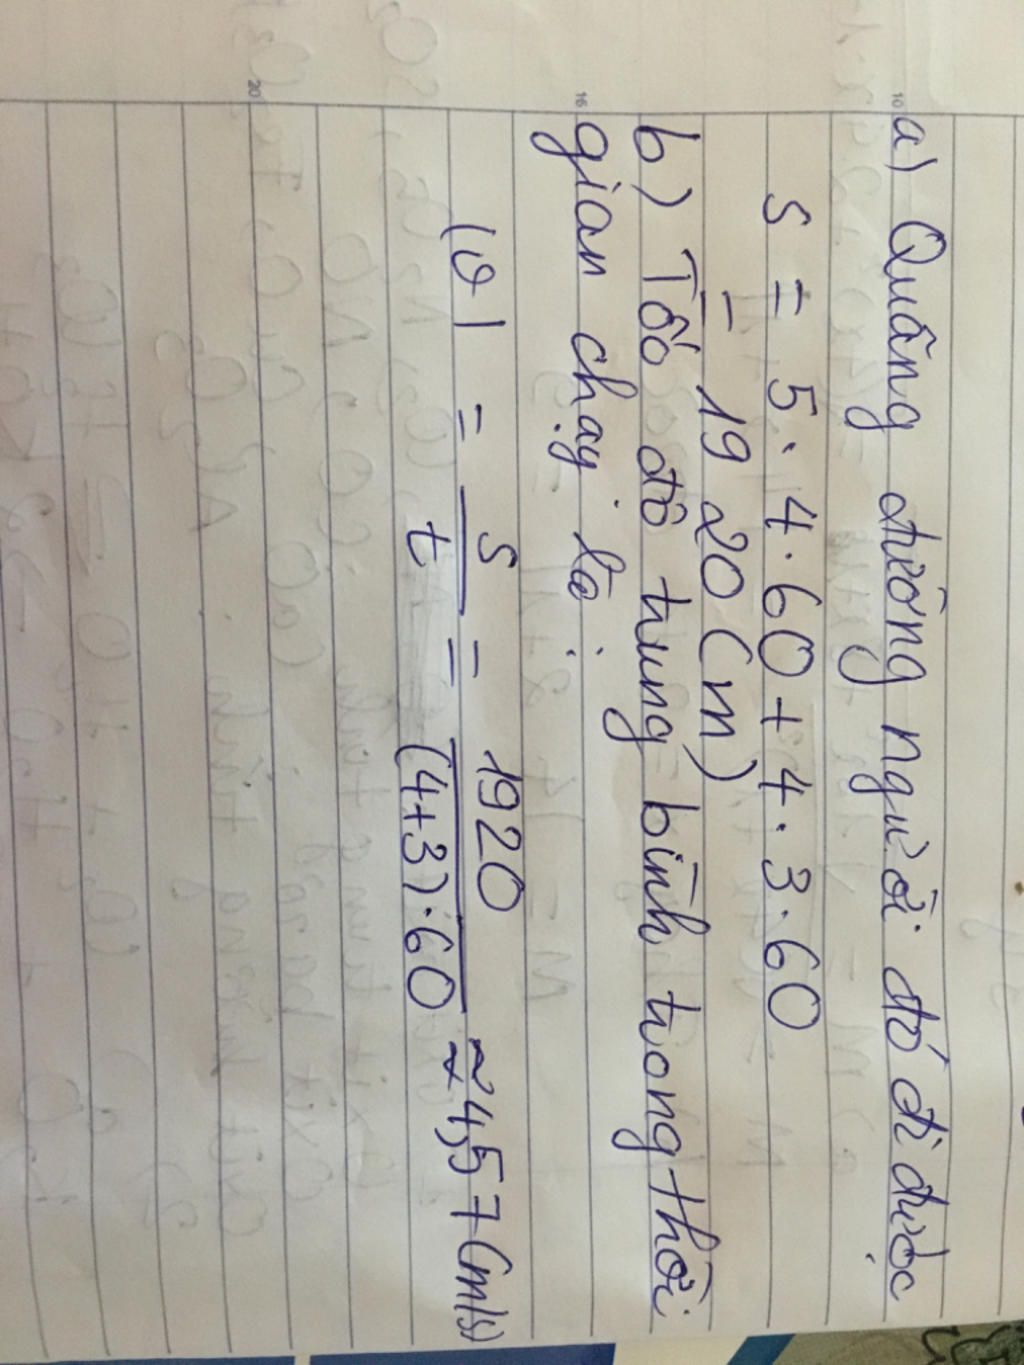 a) Quãng đường người đó đi được
S = 5.4.60 + 4.3.60
= 1920 (m)
b) Tốc độ trung bình trong thời
gian chạy là:
|v| = S/t = 1920/((4+3).60) ≈ 4,57 (m/s)
10
16
20